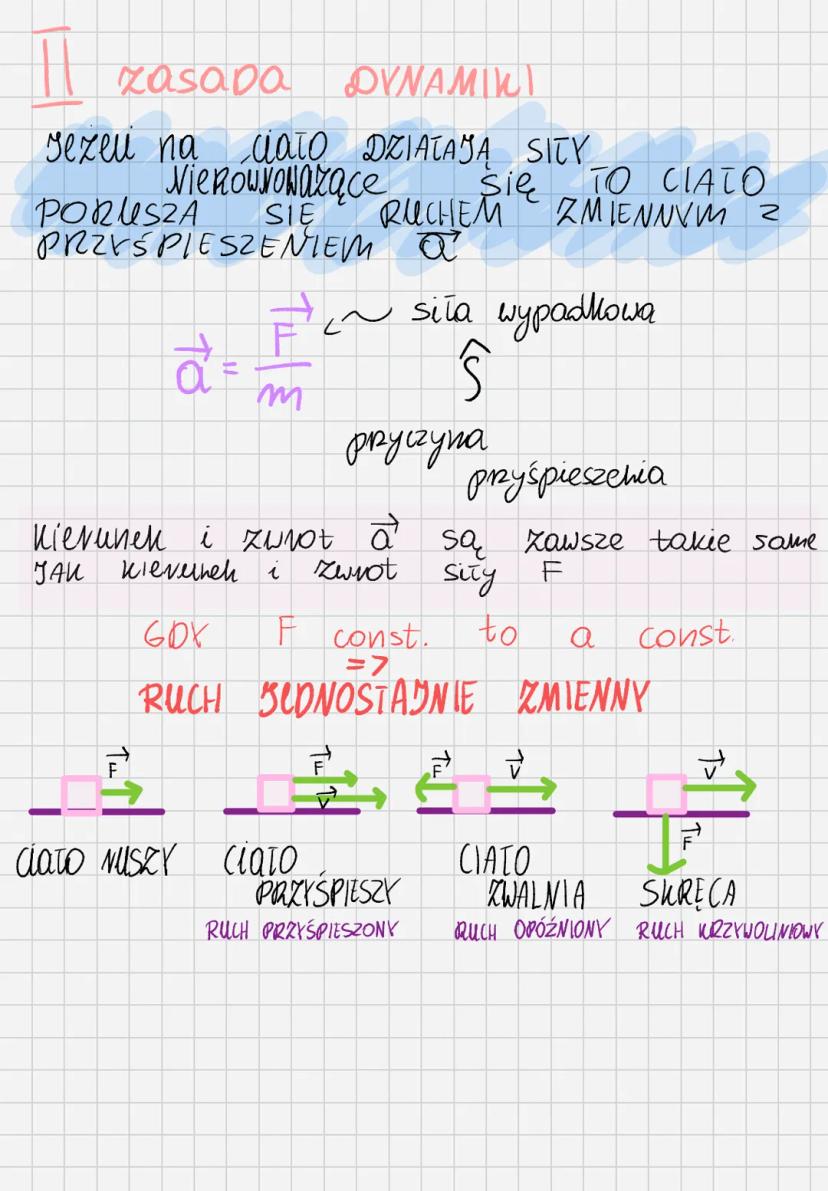 II zasada DYNAMIKI
Jeżeli na ciało DZIAŁAJĄ SIŁY
NIERÓWNOWAŻĄCE się TO CIAŁO
PORUSZA SIĘ RUCHEM ZMIENNYM z
PRZYŚPIESZENIEM a
a = F/m siła wypadkowa
pryczyna
przyśpieszenia
Kierunek i zwrot a są zawsze takie same
JAK kierunek i zwrot siły F
GDY F const. to a const.
=>
RUCH JEDNOSTAJNIE ZMIENNY
F F V F V V F
CIAŁO RUSZY CIAŁO PRZYŚPIESZY CIAŁO ZWALNIA SKRĘCA
RUCH PRZYŚPIESZONY RUCH OPÓŹNIONY RUCH KRZYWOLINIOWY